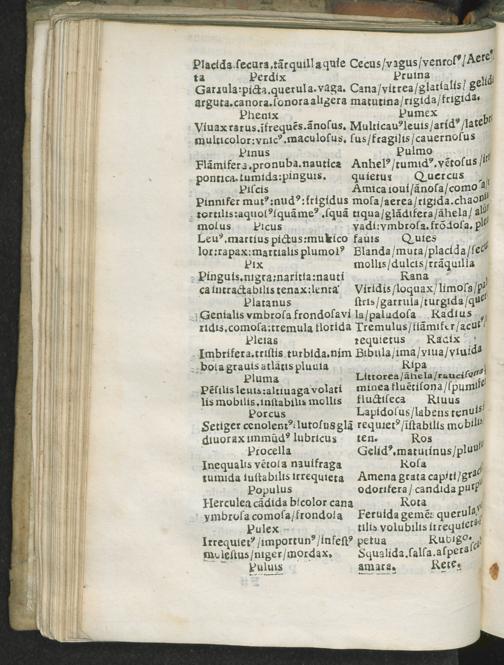 Placida.secura.tãrquilla quie
ta Perdix
Garrula:picta.querula.vaga.
arguta.canora.sonora aligera
Phenix
Viuax rarus.ĩfrequẽs.ãnosus.
multicolor:vnicꝰ.maculosus.
Pinus
Flãmifera.pronuba.nautica
pontica.tumida:pinguis.
Piscis
Pinnifer mutꝰ:nudꝰ:frigidus
tortilis:aquosꝰ:squãmeꝰ.squã
mosus Picus
Leuꝰ.martius pictus:multico
lor:rapax:martialis plumosꝰ
Pix
Pinguis.nigra:naritia:nauti
ca intractabilis tenax:lenta
Platanus
Genialis vmbrosa frondosa vi
ridis.comosa:tremula florida
Pleias
Imbrifera.tristis turbida.nim
bosa grauis atlãtis pluuia
Pluma
Pẽsilis leuis:altiuaga volati
lis mobilis.instabilis mollis
Porcus
Setiger cenolentꝰ:lutosus glã
diuorax immũdꝰ lubricus
Procella
Inequalis vẽtosa naufraga
tumida instabilis irrequieta
Populus
Herculea cãdida bicolor cana
vmbrosa comosa/frondosa
Pulex
Irrequietꝰ/importunꝰ/infestꝰ
molestus/niger/mordax.
Puluis
Cecus/vagus/ventosꝰ/Aereꝰ.
Pruina
Cana/vitrea/glatialis/
matutina/rigida/frigida.
Pumex
Multicauꝰ leuis/aridꝰ/
sus/fragilis/cauernosus
Pulmo
Anhelꝰ/tumidꝰ.vẽtosus/
quietus Quercus
Amica ioui/ãnosa/
mosa/aerea/rigida.chaonis
tiqua/glãdifera/ãhela/
uadi:vmbrosa.frõdosa.
fauis Quies
Blanda/muta/placida/
mollis/dulcis/trãquilla
Rana
Viridis/loquax/limosa/
stris/garrula/turgida/
la/paludosa Radius
Tremulus/flãmifer/acutꝰ/
requietus Radix
Bibula/ima/viua/viuida
Ripa
Littorea/ãhela/
minea fluctisona/
fluctiseca Riuus
Lapidosus/labens
requietꝰ/istabilis mobilis
ten. Ros
Gelidꝰ.matutinus/
Rosa
Amena grata capiti/
odorifera/candida
Rota
Feruida gemẽs querula
tilis volubilis irrequieta
petua Rubigo.
Squalida.salsa.aspera
amara. Rete.